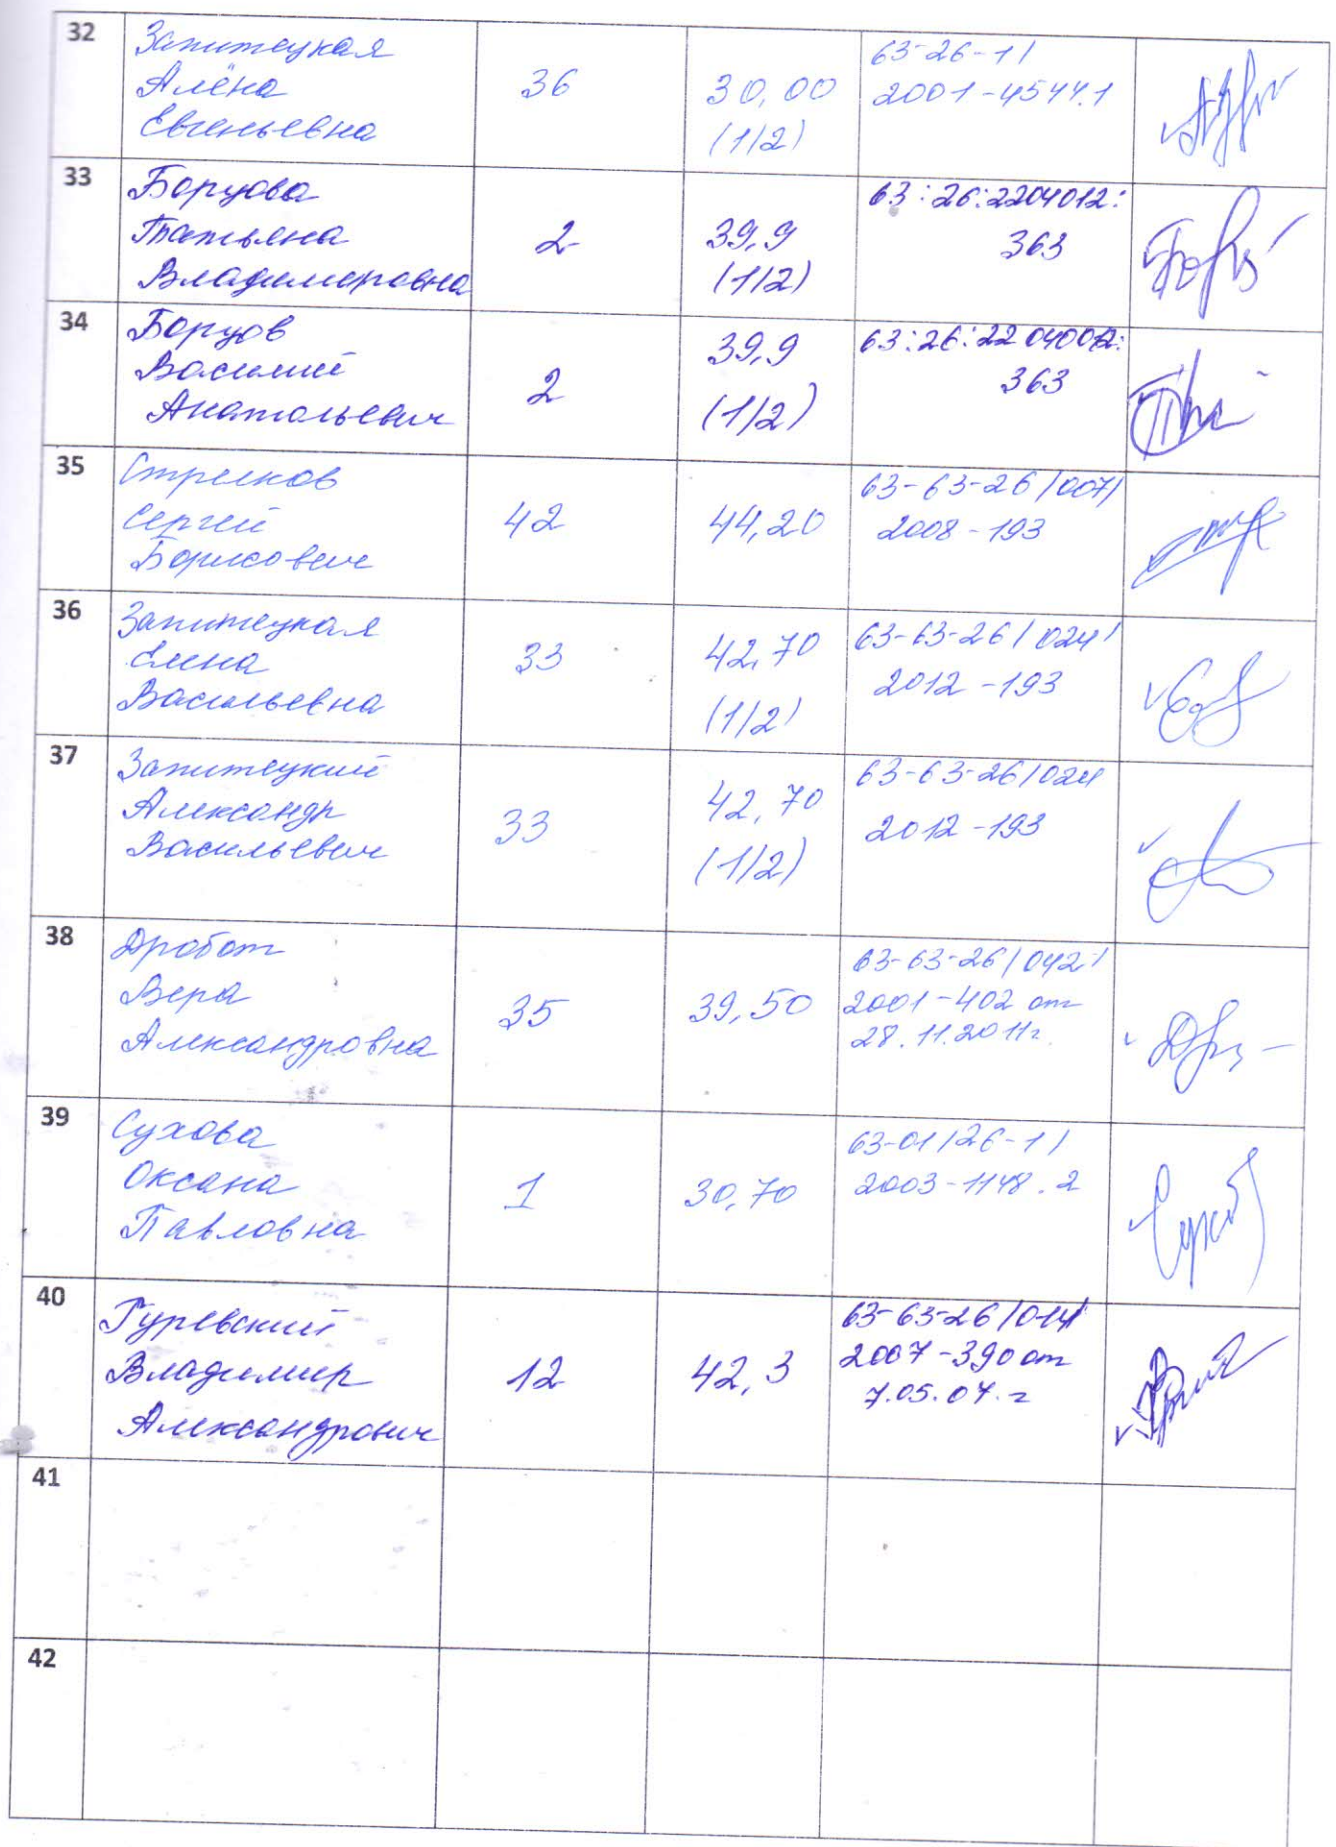 32
Запитецкая
Алёна
Евгеньевна
36
30,00
(1/2)
63-26-1/
2001-4544.1
33
Борцова
Татьяна
Владимировна
2
39,9
(1/2)
63:26:2204012:
363
34
Борцов
Василий
Анатольевич
2
39,9
(1/2)
363
35
Стрелков
Сергей
Борисович
42
44,20
63-63-26/007/
2008-193
36
Запитецкая
Елена
Васильевна
33
42,70
(1/2)
63-63-26/024/
2012-193
37
Запитецкий
Александр
Васильевич
33
42,70
(1/2)
63-63-26/024
2012-193
38
Дробот
Вера
Александровна
35
39,50
63-63-26/042/
2001-402 от
28.11.2011г.
39
Сухова
Оксана
Павловна
1
30,70
63-01/26-1/
2003-1148.2
40
Гуревский
Владимир
Александрович
12
42,3
63-63-26/014/
2007-390 от
7.05.07.г
41
42